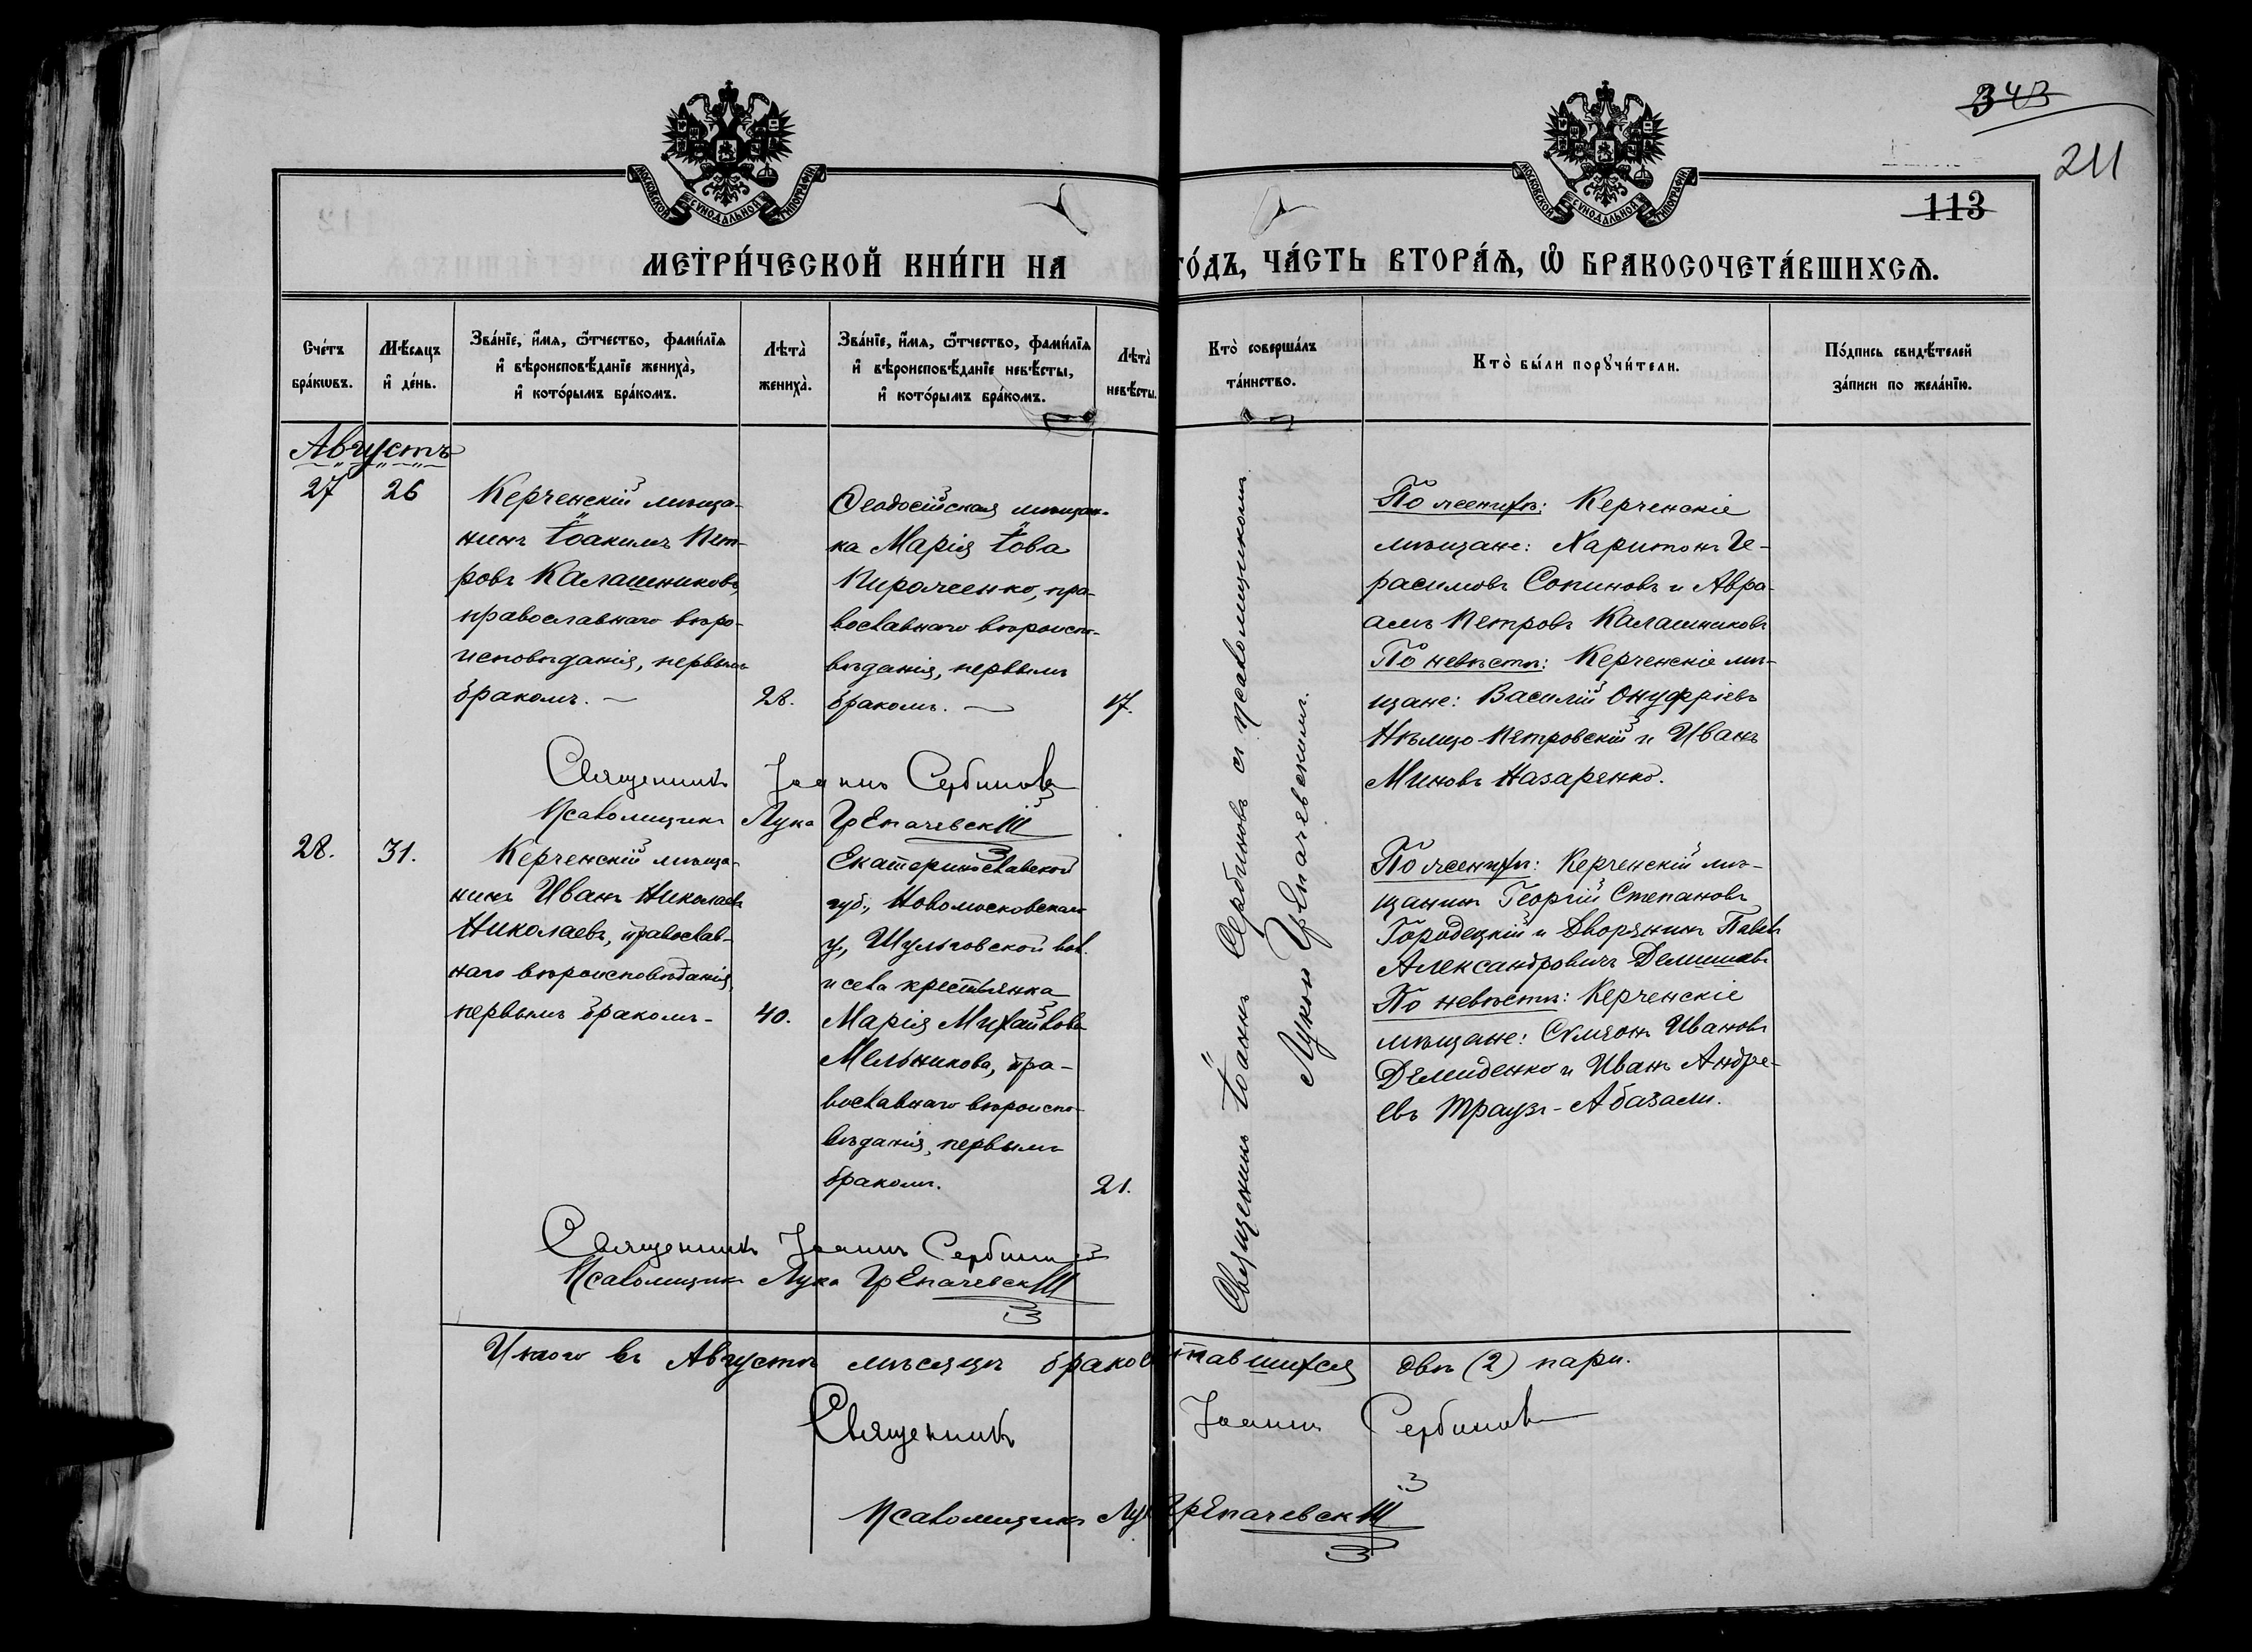 343
211
113
МОСКОВСКОЙ СѴНОДАЛЬНОЙ ТИПОГРАФІИ
МОСКОВСКОЙ СѴНОДАЛЬНОЙ ТИПОГРАФІИ
МЕТРИ́ЧЕСКОЙ КНИ́ГИ НА ГО́ДЪ, ЧА́СТЬ ВТОРА́Ѧ, Ѽ БРАКОСОЧЕТА́ВШИХСѦ.
Сче́тъ
бра́кωвъ.
Мѣ́сяцъ
и҆ де́нь.
Зва́нїе, и҆́мѧ, ѻ҆́тчество, фами́лїѧ
и҆ вѣроисповѣ́данїе жениха̀,
и҆ кото́рымъ бра́комъ.
Лѣта̀
жениха̀.
Зва́нїе, и҆́мѧ, ѻ҆́тчество, фами́лїѧ
и҆ вѣроисповѣ́данїе невѣ́сты,
и҆ кото́рымъ бра́комъ.
Лѣта̀
невѣ́сты.
Кто̀ соверша́лъ
та́инство.
Кто̀ бы́ли порꙋчи́тели.
По́дпись свидѣ́телей
за́писи по жела́нїю.
Августъ
27
26
Керченскій мѣща-
нинъ Іоакимъ Пет-
ровъ Калашниковъ,
православнаго вѣро-
исповѣданія, первымъ
бракомъ. —
28.
Ѳеодосійская мѣщан-
ка Марія Іова
Пироженко, пра-
вославнаго вѣроиспо-
вѣданія, первымъ
бракомъ. —
17.
Священникъ Іоаннъ Сербиновъ съ псаломщикомъ
Лукою Грепачевскимъ.
По женихѣ: Керченскіе
мѣщане: Харитонъ Ге-
расимовъ Сопиновъ и Авра-
амъ Петровъ Калашниковъ
По невѣстѣ: Керченскіе мѣ-
щане: Василій Онуфріевъ
Нѣмцо-Петровскій и Иванъ
Миновъ Назаренко.
Священникъ Іоаннъ Сербиновъ
Псаломщикъ Лука Грепачевскій
28.
31.
Керченскій мѣща-
нинъ Иванъ Николаевъ
Николаевъ, православ-
наго вѣроисповѣданія,
первымъ бракомъ-
40.
Екатеринославской
губ., Новомосковскаго
у, Шульговской вол.
и села крестьянка
Марія Михайлова
Мельникова, пра-
вославнаго вѣроиспо-
вѣданія, первымъ
бракомъ.
21.
По женихѣ: Керченскій мѣ-
щанинъ Георгій Степановъ
Городецкій и Дворянинъ Павелъ
Александровичъ
По невѣстѣ: Керченскіе
мѣщане: Симеонъ Ивановъ
Демиденко и Иванъ Андре-
евъ Траузъ-Абазали.
Священникъ Іоаннъ Сербиновъ
Псаломщикъ Лука Грепачевскій
Итого въ Августѣ мѣсяцѣ бракосочетавшихся двѣ (2) пары.
Священникъ Іоаннъ Сербиновъ
Псаломщикъ Лука Грепачевскій